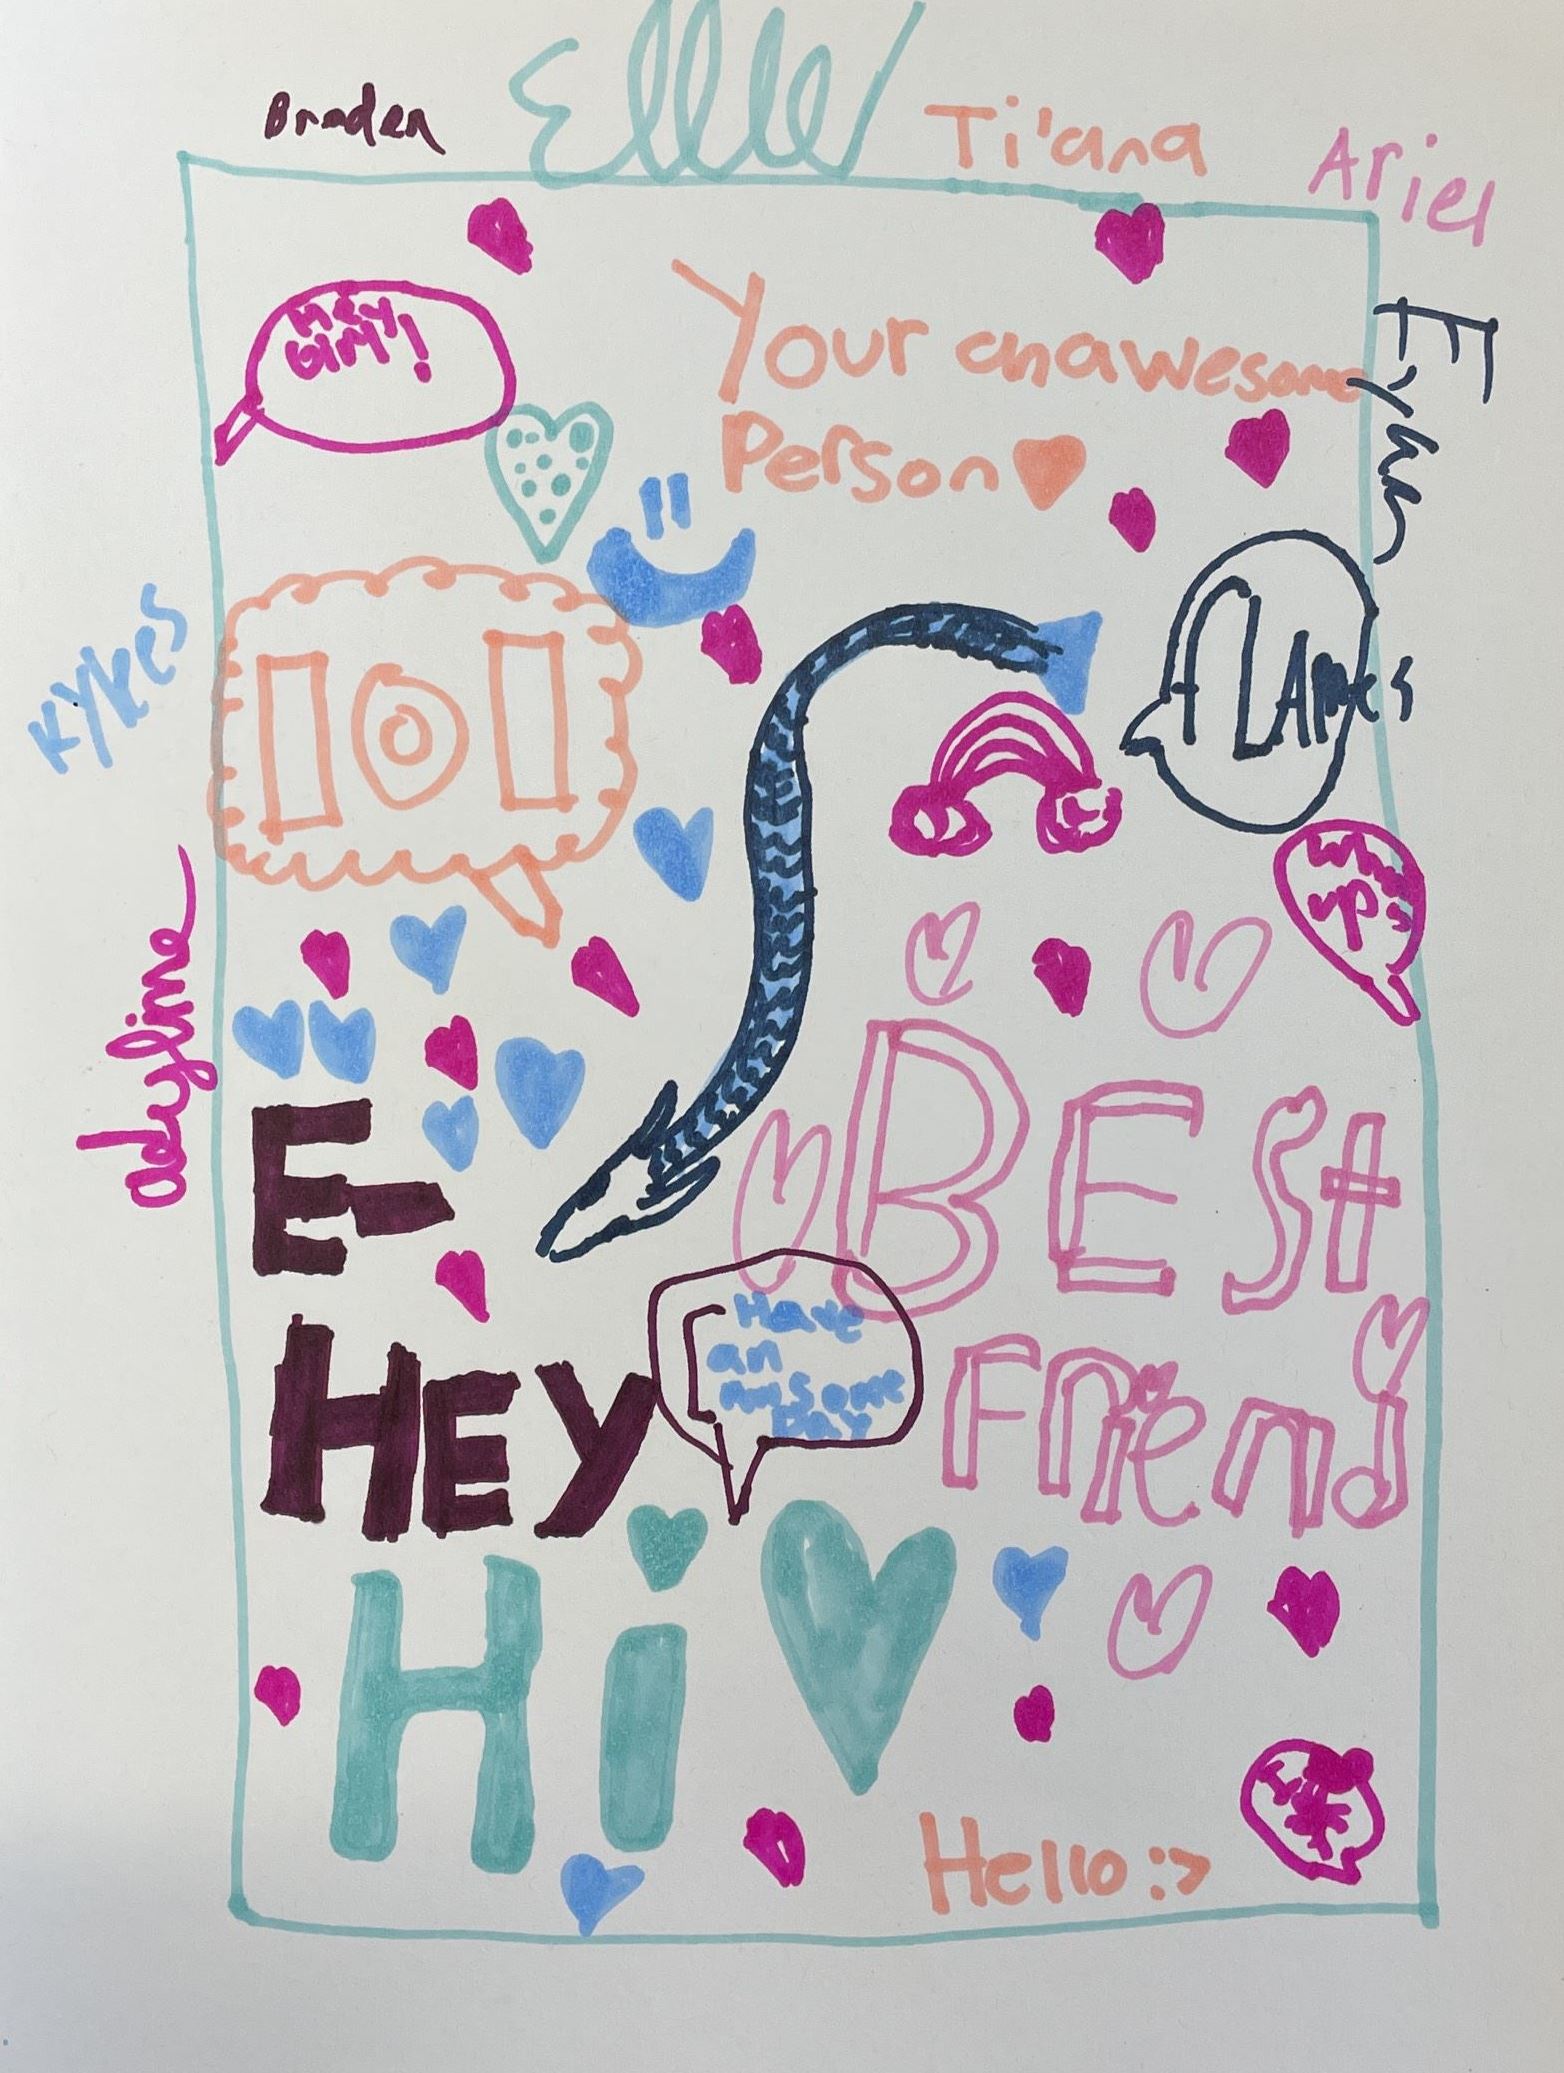 Braden
Elle
Ti'ana
Ariel
HEY
GIRl!
Your anawesome
Person
kykes
lol
fLAmes
What
up
adeyline
E-
HEY
BESt
Friend
Have
an
awsome
DAY
Hi
Hello :>